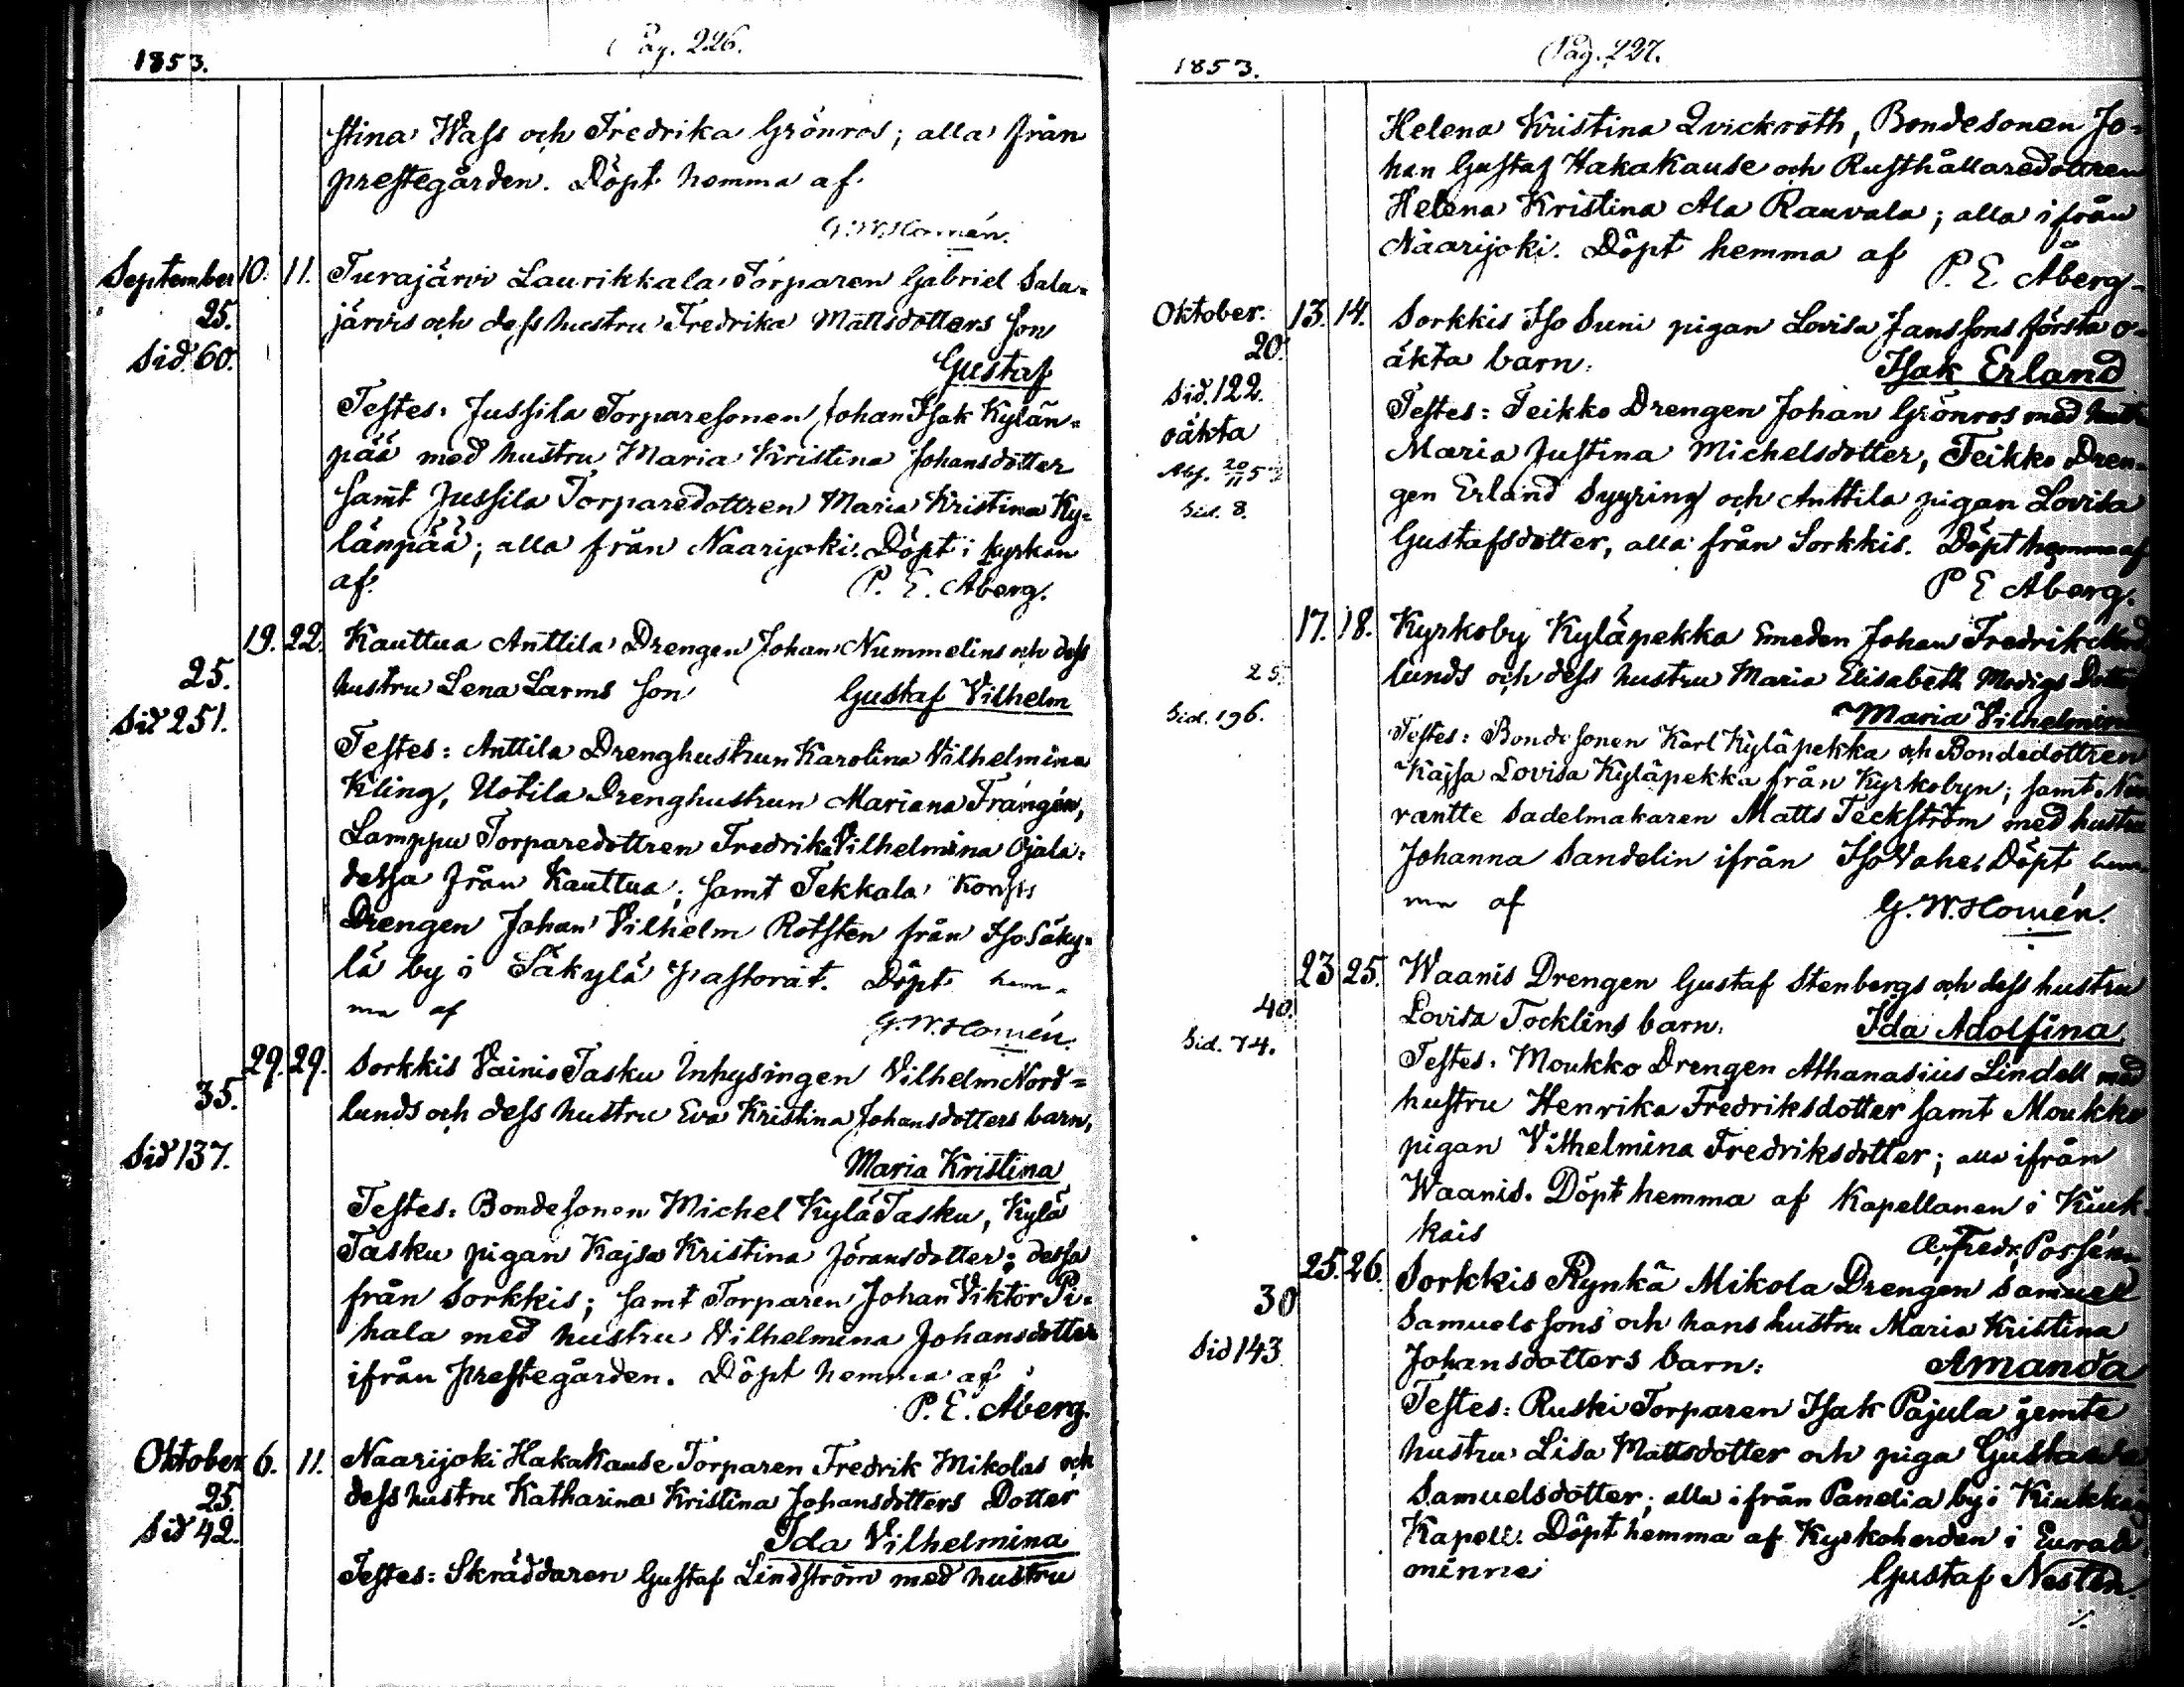 Pag. 226.
1853.
stina Wass och Fredrika Grönros; alla från
prestegården. Döpt hemma af
G.W.Homén.
September 10. 11. Turajärvi Laurikkala Torparen Gabriel Sala-
25. järvis och dess hustru Fredrika Mattsdotters son
Sid. 60. Gustaf
Testes: Jussila Torparesonen Johan Isak Kylän-
pää med hustru Maria Kristina Johansdotter
samt Jussila Torparedottren Maria Kristina Ky-
länpää; alla från Naarijoki. Döpt i kyrkan
af P. E. Åberg.
19. 22. Kauttua Anttila Drengen Johan Nummelins och dess
25. hustru Lena Larms son Gustaf Vilhelm
Sid 251.
Testes: Anttila Drenghustrun Karolina Vilhelmina
Kling, Uotila Drenghustrun Mariana Frangén,
Lamppu Torparedottren Fredrika Vilhelmina Ojala:
dessa från Kauttua; samt Tekkala
Drengen Johan Vilhelm Rotsten från Iso Säky-
lä by i Säkylä Pastorat. Döpt hem-
ma af G.W.Homén.
29. 29. Sorkkis Vainio Tasku Inhysingen Vilhelm Nord-
35. lunds och dess hustru Eva Kristina Johansdotters barn,
Sid 137. Maria Kristina
Testes: Bondesonen Michel Kylä Tasku, Kylä
Tasku pigan Kajsa Kristina Jöransdotter; dessa
från Sorkkis; samt Torparen Johan Viktor Pi-
hala med hustru Vilhelmina Johansdotter
ifrån Prestegården. Döpt hemma af
P. E. Åberg.
Oktober 6. 11. Naarijoki Hakakause Torparen Fredrik Mikolas och
25. dess hustru Katharina Kristina Johansdotters Dotter
Sid 42. Ida Vilhelmina
Testes: Skräddaren Gustaf Lindström med hustru
Pag. 227.
1853.
Helena Kristina Qvickroth, Bondesonen Jo-
han Gustaf Hakakause och Rusthållaredottren
Helena Kristina Ala Rauvala; alla ifrån
Naarijoki. Döpt hemma af
P. E. Åberg.
Oktober. 13. 14. Sorkkis Iso Suni pigan Lovisa Janssons första o-
20. äkta barn: Isak Erland
Sid. 122.
oäkta
Sid. 8.
Testes: Teikko Drengen Johan Grönros med hustru
Maria Justina Michelsdotter, Teikko Dren-
gen Erland Syyring och Anttila pigan Lovisa
Gustafsdotter, alla från Sorkkis. Döpt hemma af
P E Åberg.
17. 18. Kyrkoby Kyläpekka Smeden Johan Fredrik Nord-
25. lunds och dess hustru Maria Elisabeth Modigs Dotter
Sid. 196. Maria Vilhelmina
Testes: Bondesonen Karl Kyläpekka och Bondedottren
Kajsa Lovisa Kyläpekka från Kyrkobyn; samt
rantte Sadelmakaren Matts Teckström med hustru
Johanna Sandelin ifrån Iso Vahe. Döpt hem-
ma af G.W.Homén.
23 25. Waanis Drengen Gustaf Stenbergs och dess hustru
40. Lovisa Tocklins barn: Ida Adolfina
Sid. 74.
Testes: Moukko Drengen Athanasius Lindell med
hustru Henrika Fredriksdotter samt Moukko
pigan Vilhelmina Fredriksdotter; alla ifrån
Waanis. Döpt hemma af Kapellanen i Kiuk-
kais Fredr. Possén
25. 26. Sorkkis Rynkä Mikola Drengen Samuel
30 Samuelssons och hans hustru Maria Kristina
Sid 143 Johansdotters barn: Amanda
Testes: Ruski Torparen Isak Pajula jemte
hustru Lisa Mattsdotter och piga Gustava
Samuelsdotter; alla ifrån Panelia by i Kiukkais
Kapell. Döpt hemma af Kyrkoherden i Euraå-
minne Gustaf